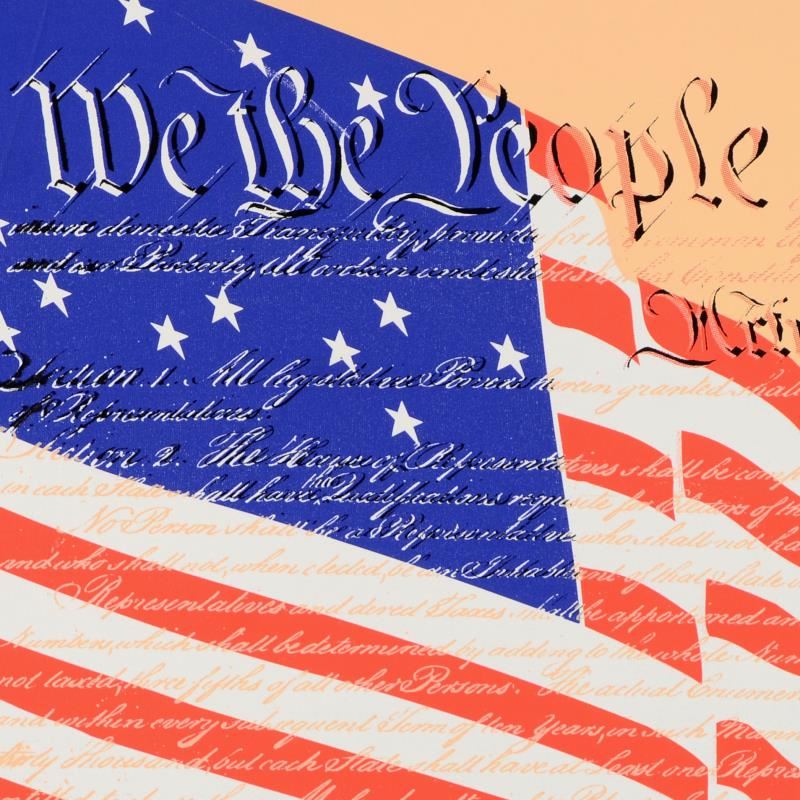 We the People
insure domestic Tranquility, provide for the common
and our Posterity, do ordain and establish this Constitut
Artic
Section. 1. All legislative Powers herein granted shall
of Representatives.
Section. 2. The House of Representatives shall be comp
in each State shall have Qualifications requisite for Electors of th
No Person shall be a Representative who shall not ha
and who shall not, when elected, be an Inhabitant of that State in
Representatives and direct Taxes shall be apportioned am
Numbers, which shall be determined by adding to the whole Num
not taxed, three fifths of all other Persons. The actual Enumer
and within every subsequent Term of ten Years, in such Manner
thirty Thousand, but each State shall have at Least one Repres